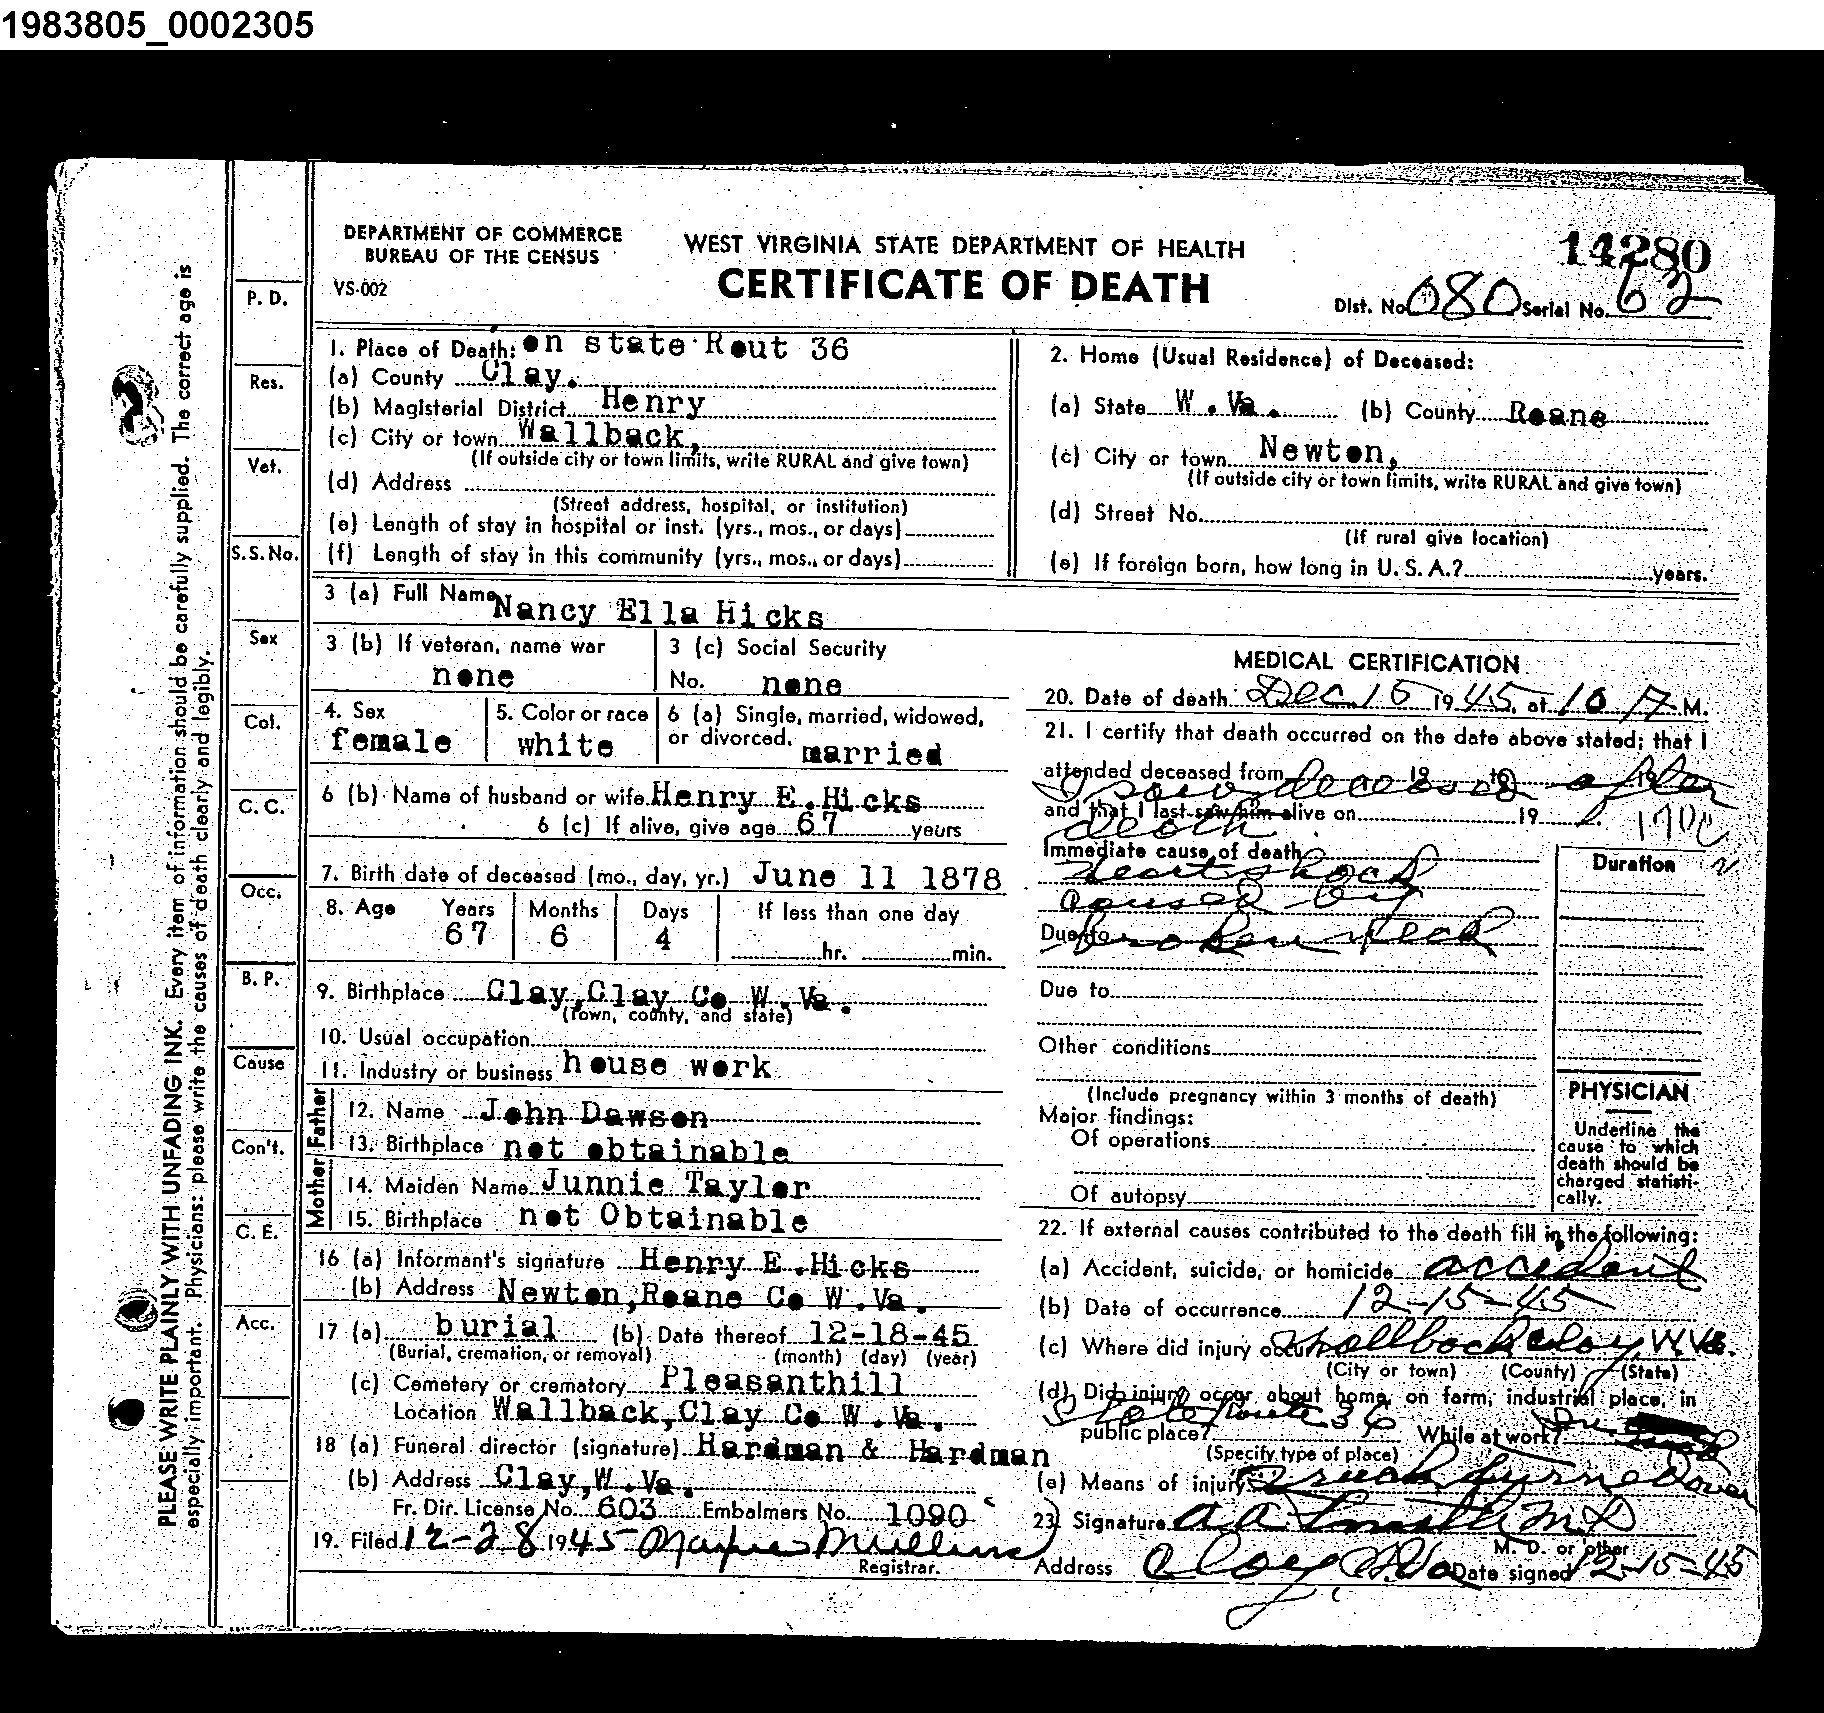 1983805_0002305
DEPARTMENT OF COMMERCE
BUREAU OF THE CENSUS
VS-002
WEST VIRGINIA STATE DEPARTMENT OF HEALTH
CERTIFICATE OF DEATH
14280
Dist. No. 080 Serial No. 62
PLEASE WRITE PLAINLY WITH UNFADING INK. Every item of information should be carefully supplied. The correct age is
especially important. Physicians: please write the causes of death clearly and legibly.
P. D.
Res.
Vet.
S.S. No.
Sex
Col.
C. C.
Occ.
B. P.
Cause
Con't.
C. E.
Acc.
1. Place of Death: on state Rout 36
(a) County Clay.
(b) Magisterial District Henry
(c) City or town Wallback,
(If outside city or town limits, write RURAL and give town)
(d) Address
(Street address, hospital, or institution)
(e) Length of stay in hospital or inst. (yrs., mos., or days)
(f) Length of stay in this community (yrs., mos., or days)
2. Home (Usual Residence) of Deceased:
(a) State W. Va. (b) County Roane
(c) City or town Newton,
(If outside city or town limits, write RURAL and give town)
(d) Street No.
(If rural give location)
(e) If foreign born, how long in U. S. A.? years.
3 (a) Full Name Nancy Ella Hicks
3 (b) If veteran, name war
none
3 (c) Social Security
No. none
4. Sex
female
5. Color or race
white
6 (a) Single, married, widowed,
or divorced. married
6 (b) Name of husband or wife Henry E. Hicks
6 (c) If alive, give age 67 years
7. Birth date of deceased (mo., day, yr.) June 11 1878
8. Age Years Months Days If less than one day
67 6 4 hr. min.
9. Birthplace Clay, Clay Co W. Va.
(Town, county, and state)
10. Usual occupation
11. Industry or business house work
Father
12. Name John Dawson
13. Birthplace not obtainable
Mother
14. Maiden Name Junnie Taylor
15. Birthplace not Obtainable
16 (a) Informant's signature Henry E. Hicks
(b) Address Newton, Roane Co W. Va.
17 (a) burial (b) Date thereof 12-18-45
(Burial, cremation, or removal) (month) (day) (year)
(c) Cemetery or crematory Pleasanthill
Location Wallback, Clay Co W. Va.
18 (a) Funeral director (signature) Hardman & Hardman
(b) Address Clay, W. Va.
Fr. Dir. License No. 603 Embalmers No. 1090
19. Filed 12-28 1945 Mullins
Registrar.
MEDICAL CERTIFICATION
20. Date of death Dec. 15 1945, at 10 A M.
21. I certify that death occurred on the date above stated; that I
attended deceased from 19 to 19
I saw deceased after
and that I last saw him alive on 19
death
Immediate cause of death
heart shock
caused by
Due to broken neck
Due to
Other conditions
(Include pregnancy within 3 months of death)
Major findings:
Of operations
Of autopsy
Duration
PHYSICIAN
Underline the
cause to which
death should be
charged statisti-
cally.
22. If external causes contributed to the death fill in the following:
(a) Accident, suicide, or homicide accident
(b) Date of occurrence 12-15-45
(c) Where did injury occur Wallback Clay W. Va.
(City or town) (County) (State)
(d) Did injury occur about home, on farm, industrial place, in
State Route 36
public place? While at work?
(Specify type of place)
(e) Means of injury truck turned over
23. Signature A A Smith M. D
M. D. or other
Address Clay W. Va Date signed 12-15-45